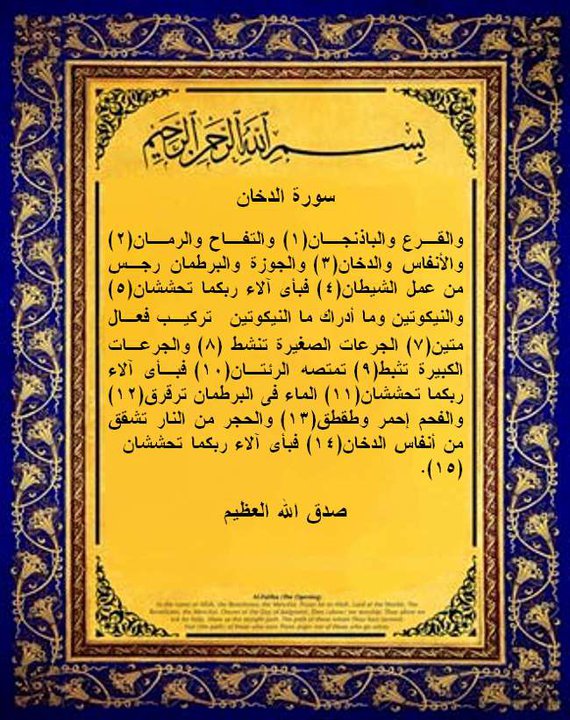 بسم الله الرحمن الرحيم
سورة الدخان
والقـــرع والباذنجـــان(١) والتفـــاح والرمـــان(٢)
والأنفاس والدخان(٣) والجوزة والبرطمان رجـس
من عمل الشيطان(٤) فبأى آلاء ربكما تحششان(٥)
والنيكوتين وما أدراك ما النيكوتين تركيـب فعـال
متين(٧) الجرعات الصغيرة تنشط (٨) والجرعـات
الكبيرة تثبط(٩) تمتصه الرئتـان(١٠) فبـأى آلاء
ربكما تحششان(١١) الماء فى البرطمان ترقرق(١٢)
والفحم إحمر وطقطق(١٣) والحجر من النار تشقق
من أنفاس الدخان(١٤) فبأى آلاء ربكما تحششان
(١٥).
صدق الله العظيم
Al-Fatiha (The Opening)